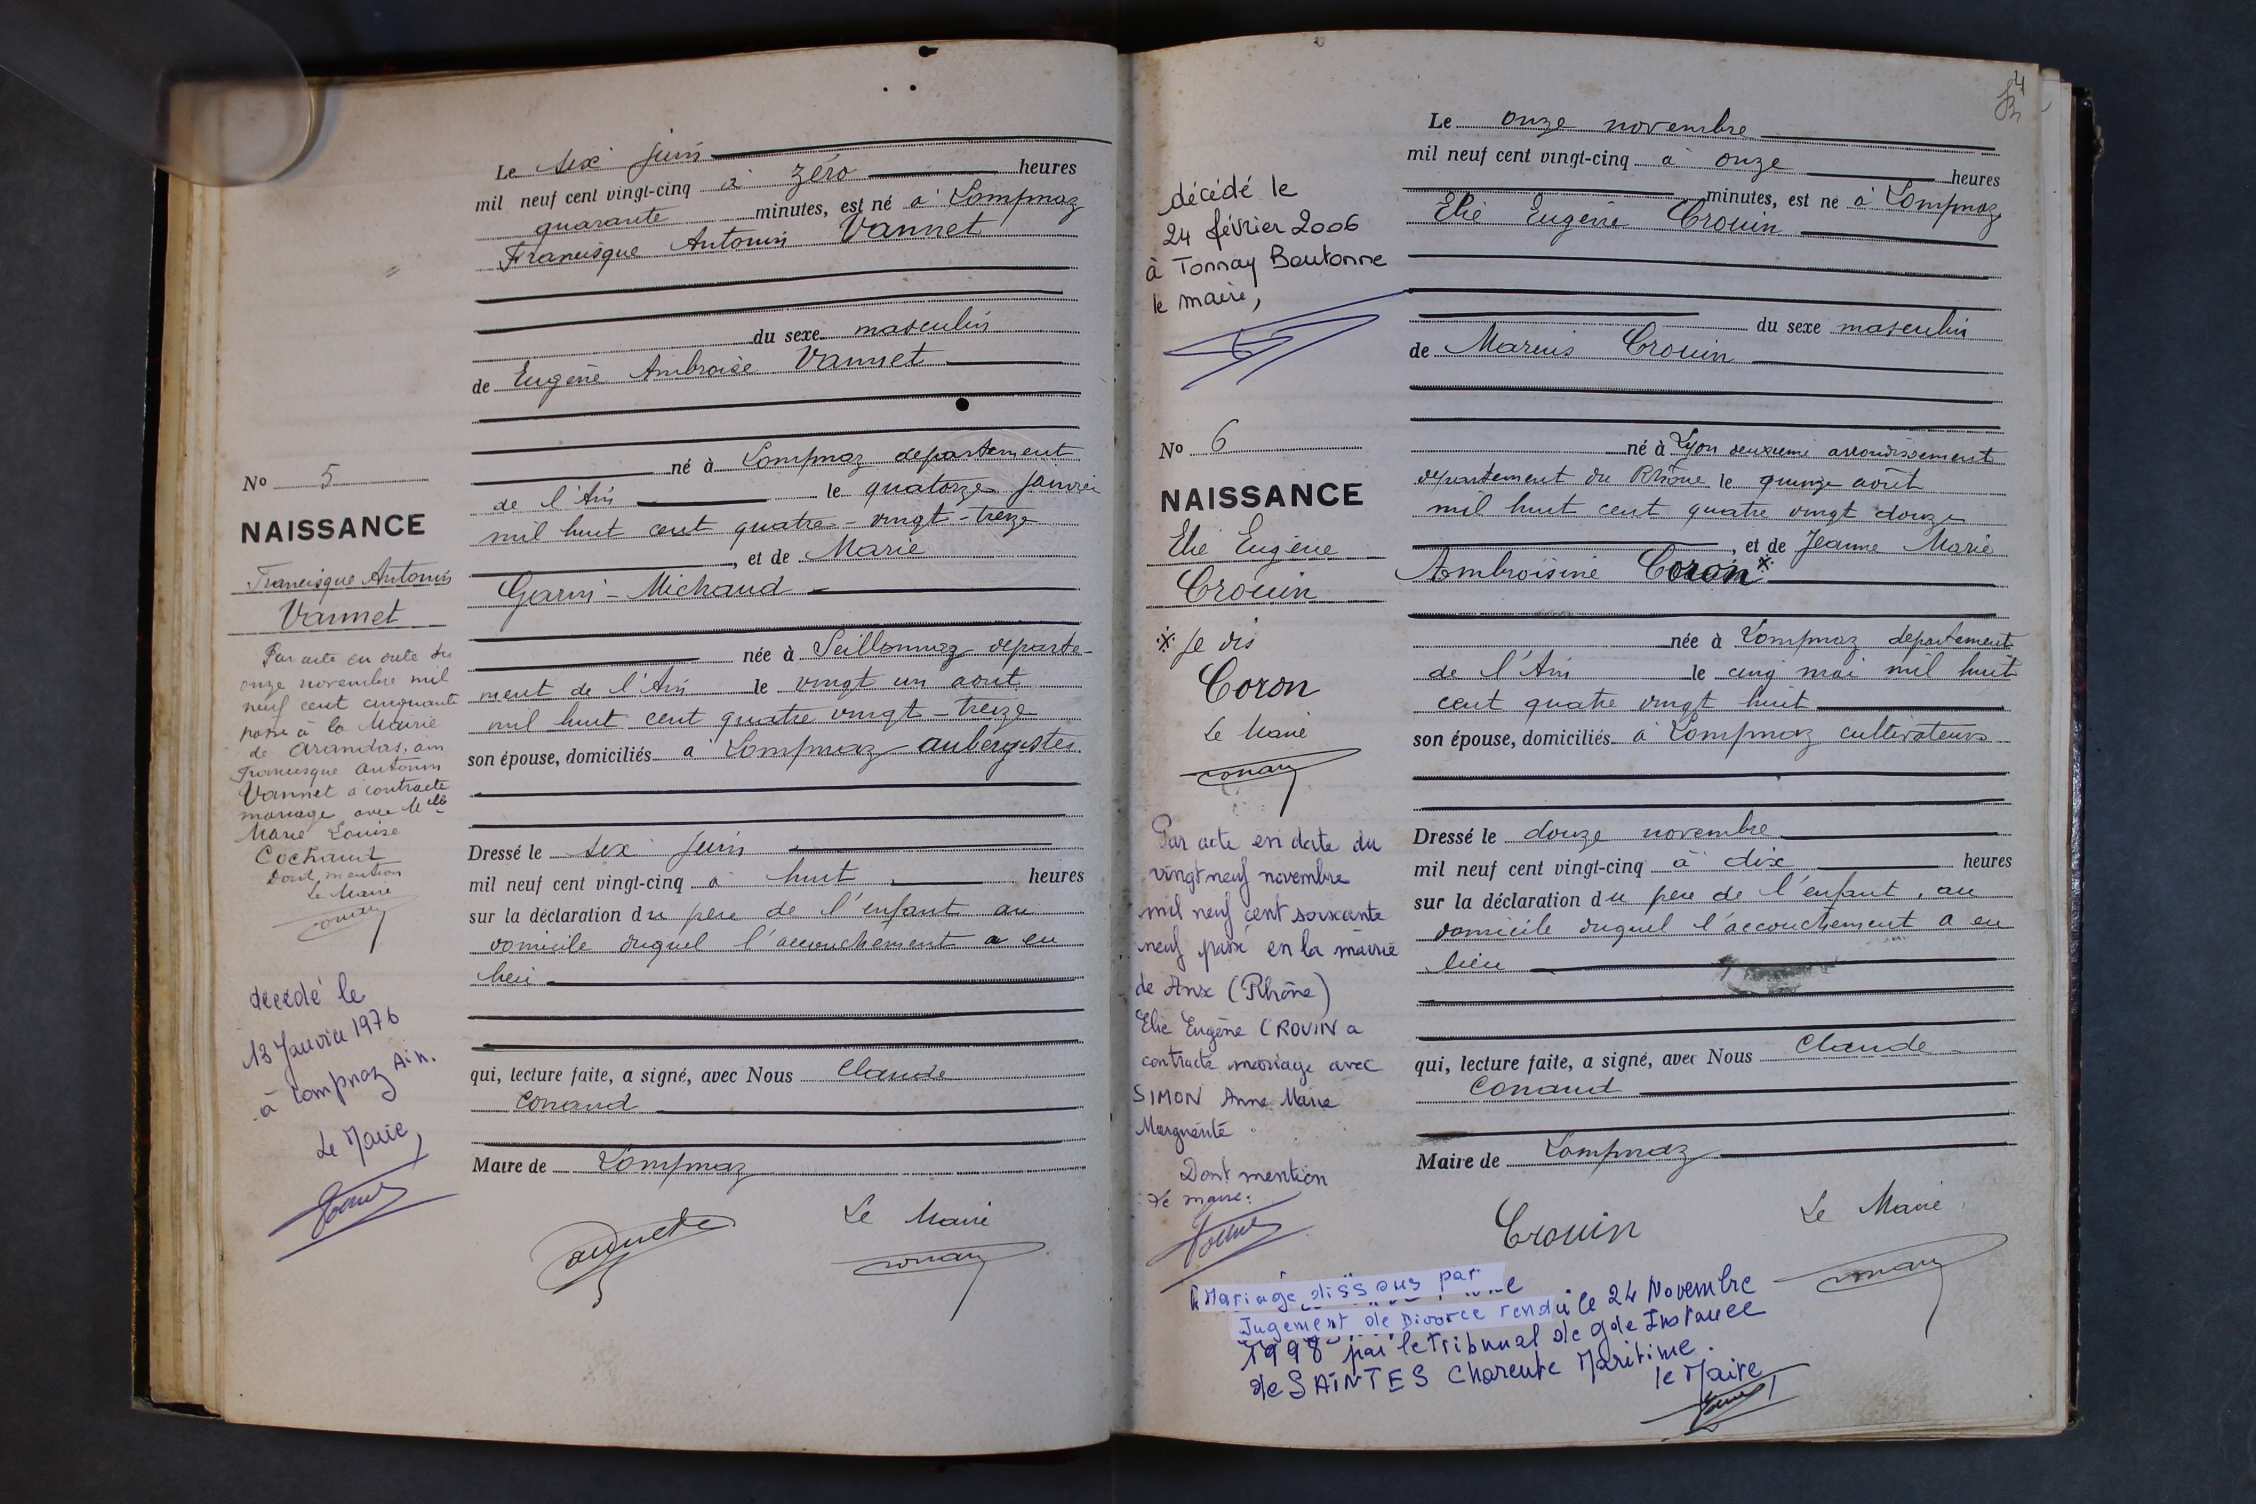 Le six juin
mil neuf cent vingt-cinq à zéro heures
quarante minutes, est né à Lompnaz
Francisque Antonin Vannet
du sexe masculin
de Eugène Ambroise Vannet
né à Lompnaz departement
de l'Ain le quatorze janvier
mil huit cent quatre-vingt-treize
, et de Marie
Garin-Michaud
née à Seillonnaz departe-
ment de l'Ain le vingt un aout
mil huit cent quatre vingt-treize
son épouse, domiciliés à Lompnaz aubergistes
Dressé le six juin
mil neuf cent vingt-cinq à huit heures
sur la déclaration du père de l'enfant au
domicile duquel l'accouchement a eu
lieu
qui, lecture faite, a signé, avec Nous Claude
Conand
Maire de Lompnaz
Le Maire
No 5
NAISSANCE
Francisque Antonin
Vannet
Par acte en date du
onze novembre mil
neuf cent cinquante
passé à la Mairie
de Arandas, ain
Francisque Antonin
Vannet a contracté
mariage avec Mlle
Marie Louise
Cochaud
Dont mention
Le Maire
décédé le
13 Janvier 1976
à Lompnaz Ain.
Le Maire,
4
Le onze novembre
mil neuf cent vingt-cinq à onze heures
minutes, est né à Lompnaz
Elie Eugène Crouin
du sexe masculin
de Marius Crouin
né à Lyon deuxième arrondissement
departement du Rhône le quinze août
mil huit cent quatre vingt douze
, et de Jeanne Marie
Ambroisine Coron*
née à Lompnaz departement
de l'Ain le cinq mai mil huit
cent quatre vingt huit
son épouse, domiciliés à Lompnaz cultivateurs
Dressé le douze novembre
mil neuf cent vingt-cinq à dix heures
sur la déclaration du père de l'enfant, au
domicile duquel l'accouchement a eu
lieu
qui, lecture faite, a signé, avec Nous Claude
Conand
Maire de Lompnaz
Crouin
Le Maire
décédé le
24 février 2006
à Tonnay Boutonne
le maire,
No 6
NAISSANCE
Elie Eugène
Crouin
* Je dis
Coron
Le Maire
Par acte en date du
vingt neuf novembre
mil neuf cent soixante
neuf passé en la mairie
de Anse (Rhône)
Elie Eugène CROUIN a
contracté mariage avec
SIMON Anne Marie
Marguerite
Dont mention
Le maire.
Mariage dissous par
Jugement de Divorce rendu le 24 Novembre
1998 par le Tribunal de gde Instance
de SAINTES Charente Maritime.
le Maire